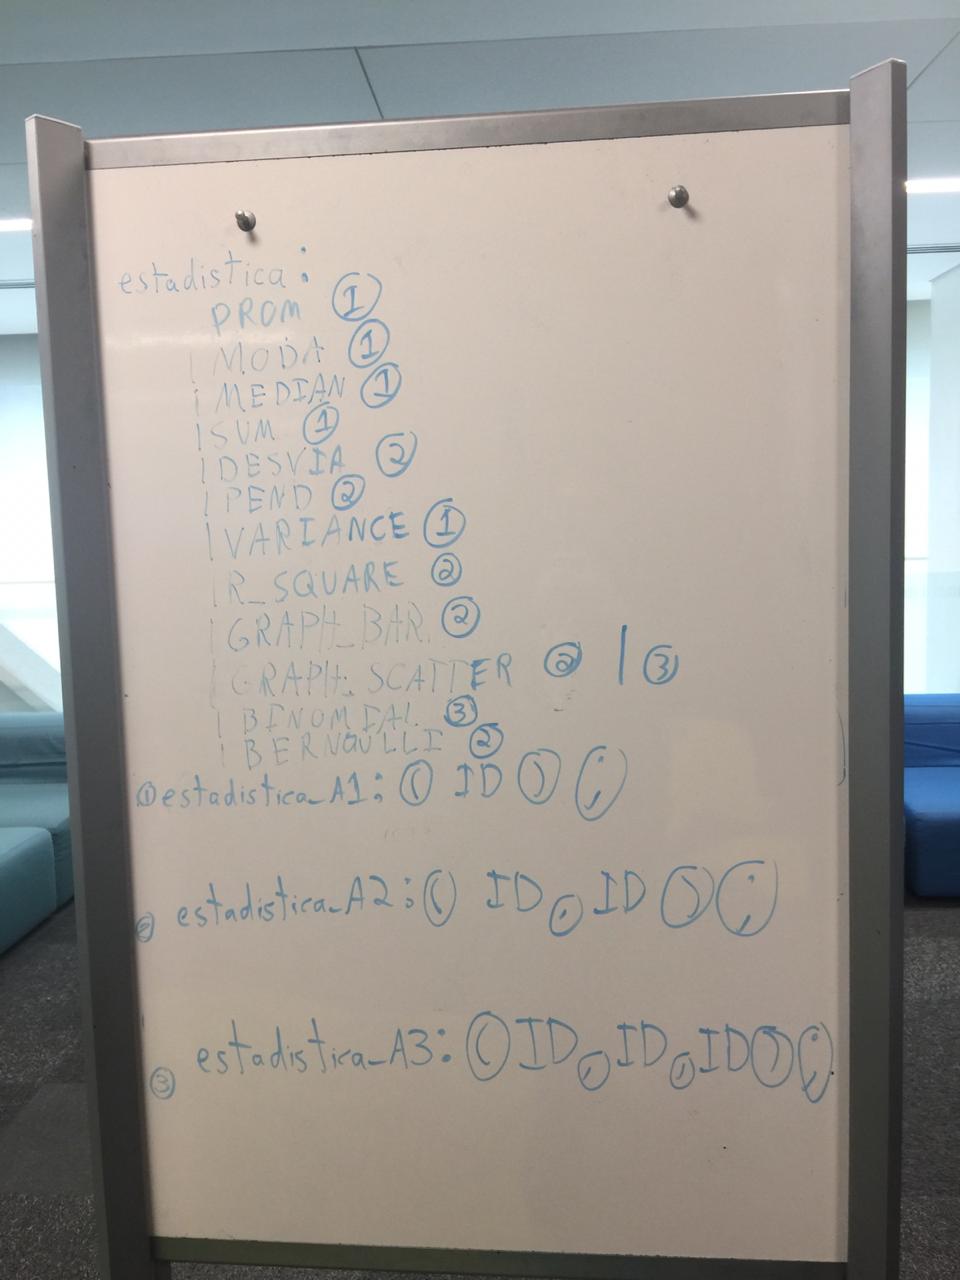 estadistica:
PROM ①
| MODA ①
| MEDIAN ①
| SUM ①
| DESVIA ②
| PEND ②
| VARIANCE ①
| R_SQUARE ②
| GRAPH_BAR ②
| GRAPH_SCATTER ② | ③
| BINOMIAL ③
| BERNOULLI ②
① estadistica_A1: ( ID ) ;
② estadistica_A2: ( ID , ID ) ;
③ estadistica_A3: ( ID , ID , ID ) ;